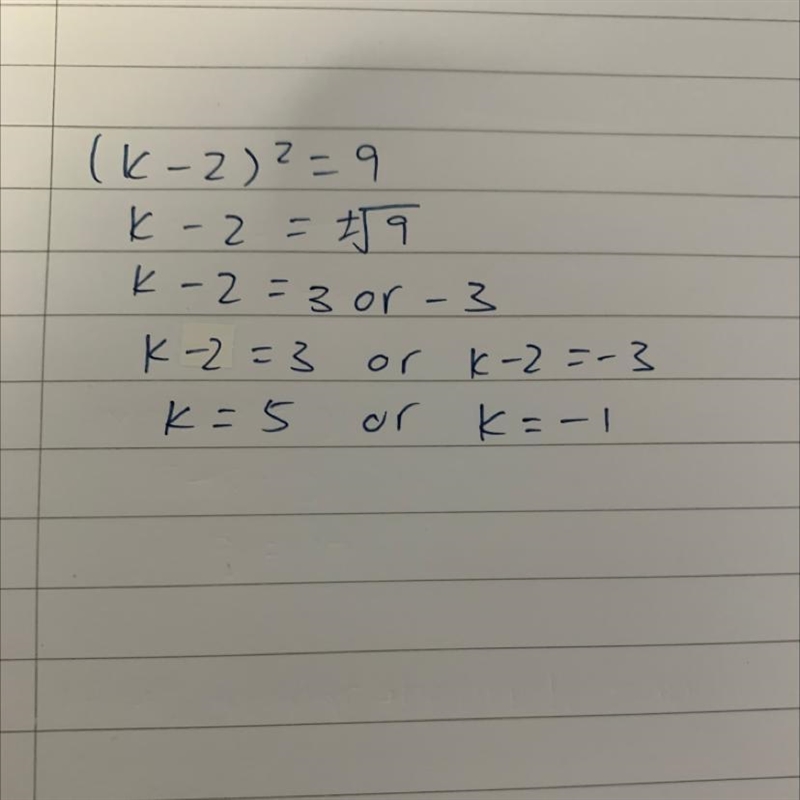 (k-2)² = 9
k - 2 = ±√9
k - 2 = 3 or - 3
k - 2 = 3 or k - 2 = - 3
k = 5 or k = - 1